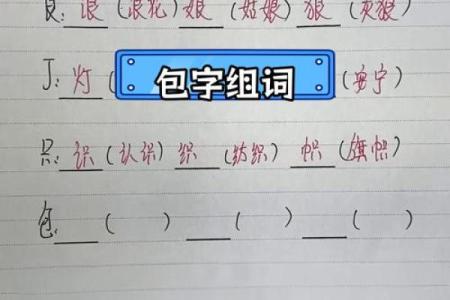 良: 浪 (浪花) 娘 (姑娘) 狼 (灰狼)
丁: 灯 ( (安宁)
包字组词
只: 识 (认识) 织 (纺织) 帜 (旗帜)
包: ( ) ( ) ( )